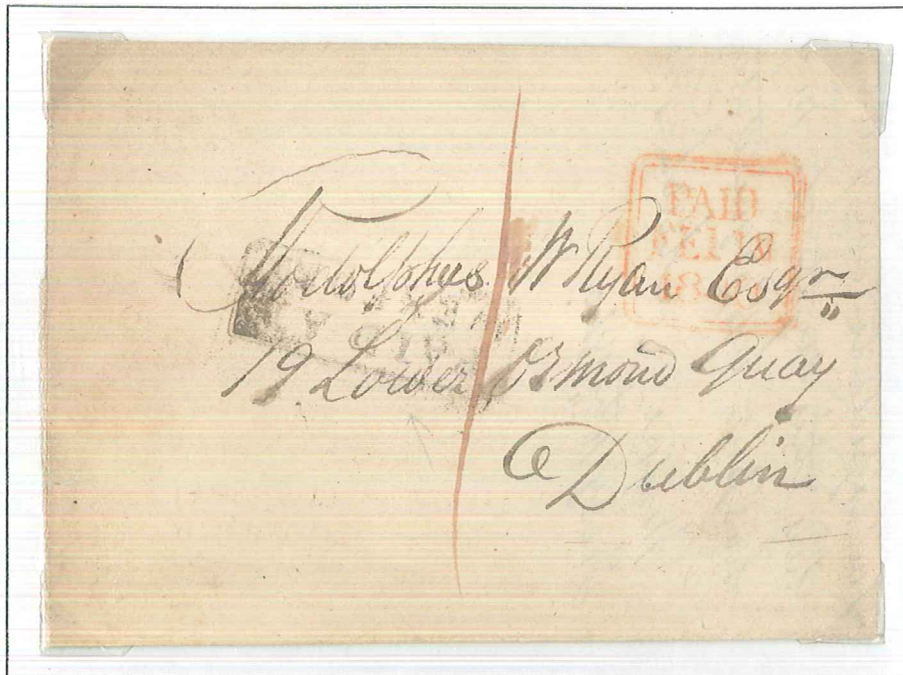 PAID
Adolphus W Ryan Esqr
19 Lower Ormond Quay
Dublin